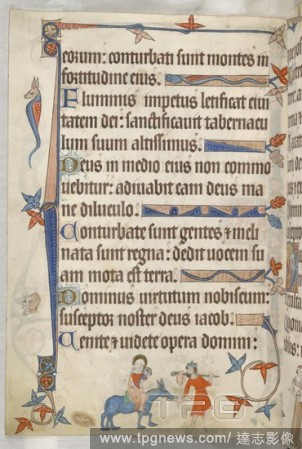 eorum: conturbati sunt montes in
fortitudine eius.
Fluminis impetus letificat ciui
tatem dei: sanctificauit tabernacu
lum suum altissimus.
Deus in medio eius non commo
uebitur: adiuuabit eam deus ma
ne diluculo.
Conturbate sunt gentes & incli
nata sunt regna: dedit uocem su
am mota est terra.
Dominus uirtutum nobiscum:
susceptor noster deus iacob.
Uenite & uidete opera domini:
TPG
www.tpgnews.com/達志影像